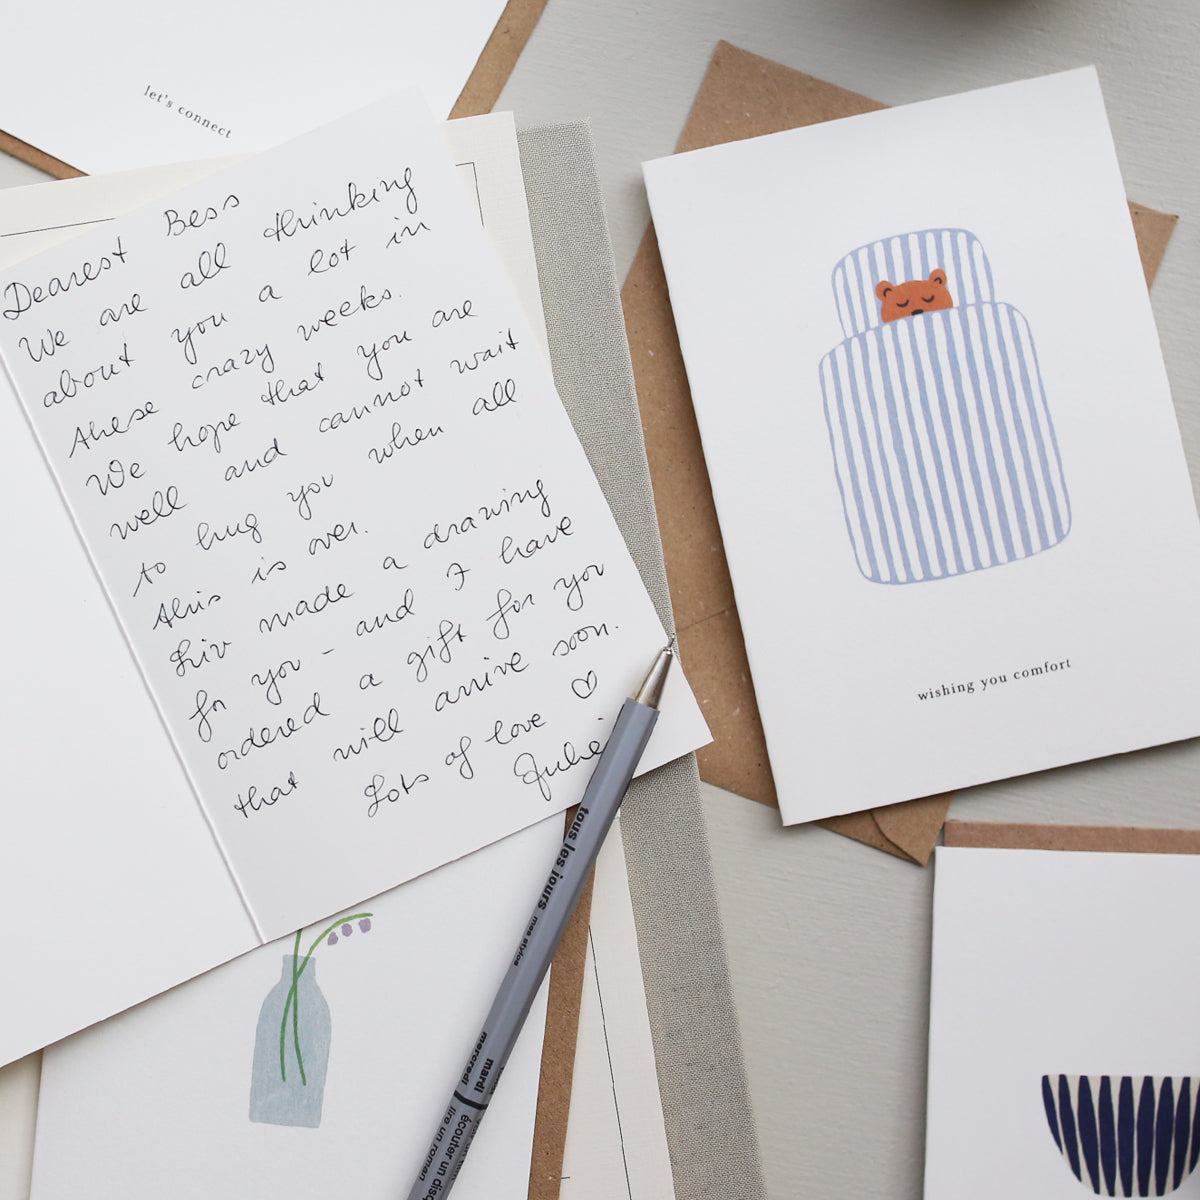 let's connect
Dearest Bess
We are all thinking
about you a lot in
these crazy weeks.
We hope that you are
well and cannot wait
to hug you when all
this is over.
Liv made a drawing
for you - and I have
ordered a gift for you
that will arrive soon.
Lots of love ♡
Julie
wishing you comfort
tous les jours mes stylos
mardi
mercredi
écouter un disq
lire un roman